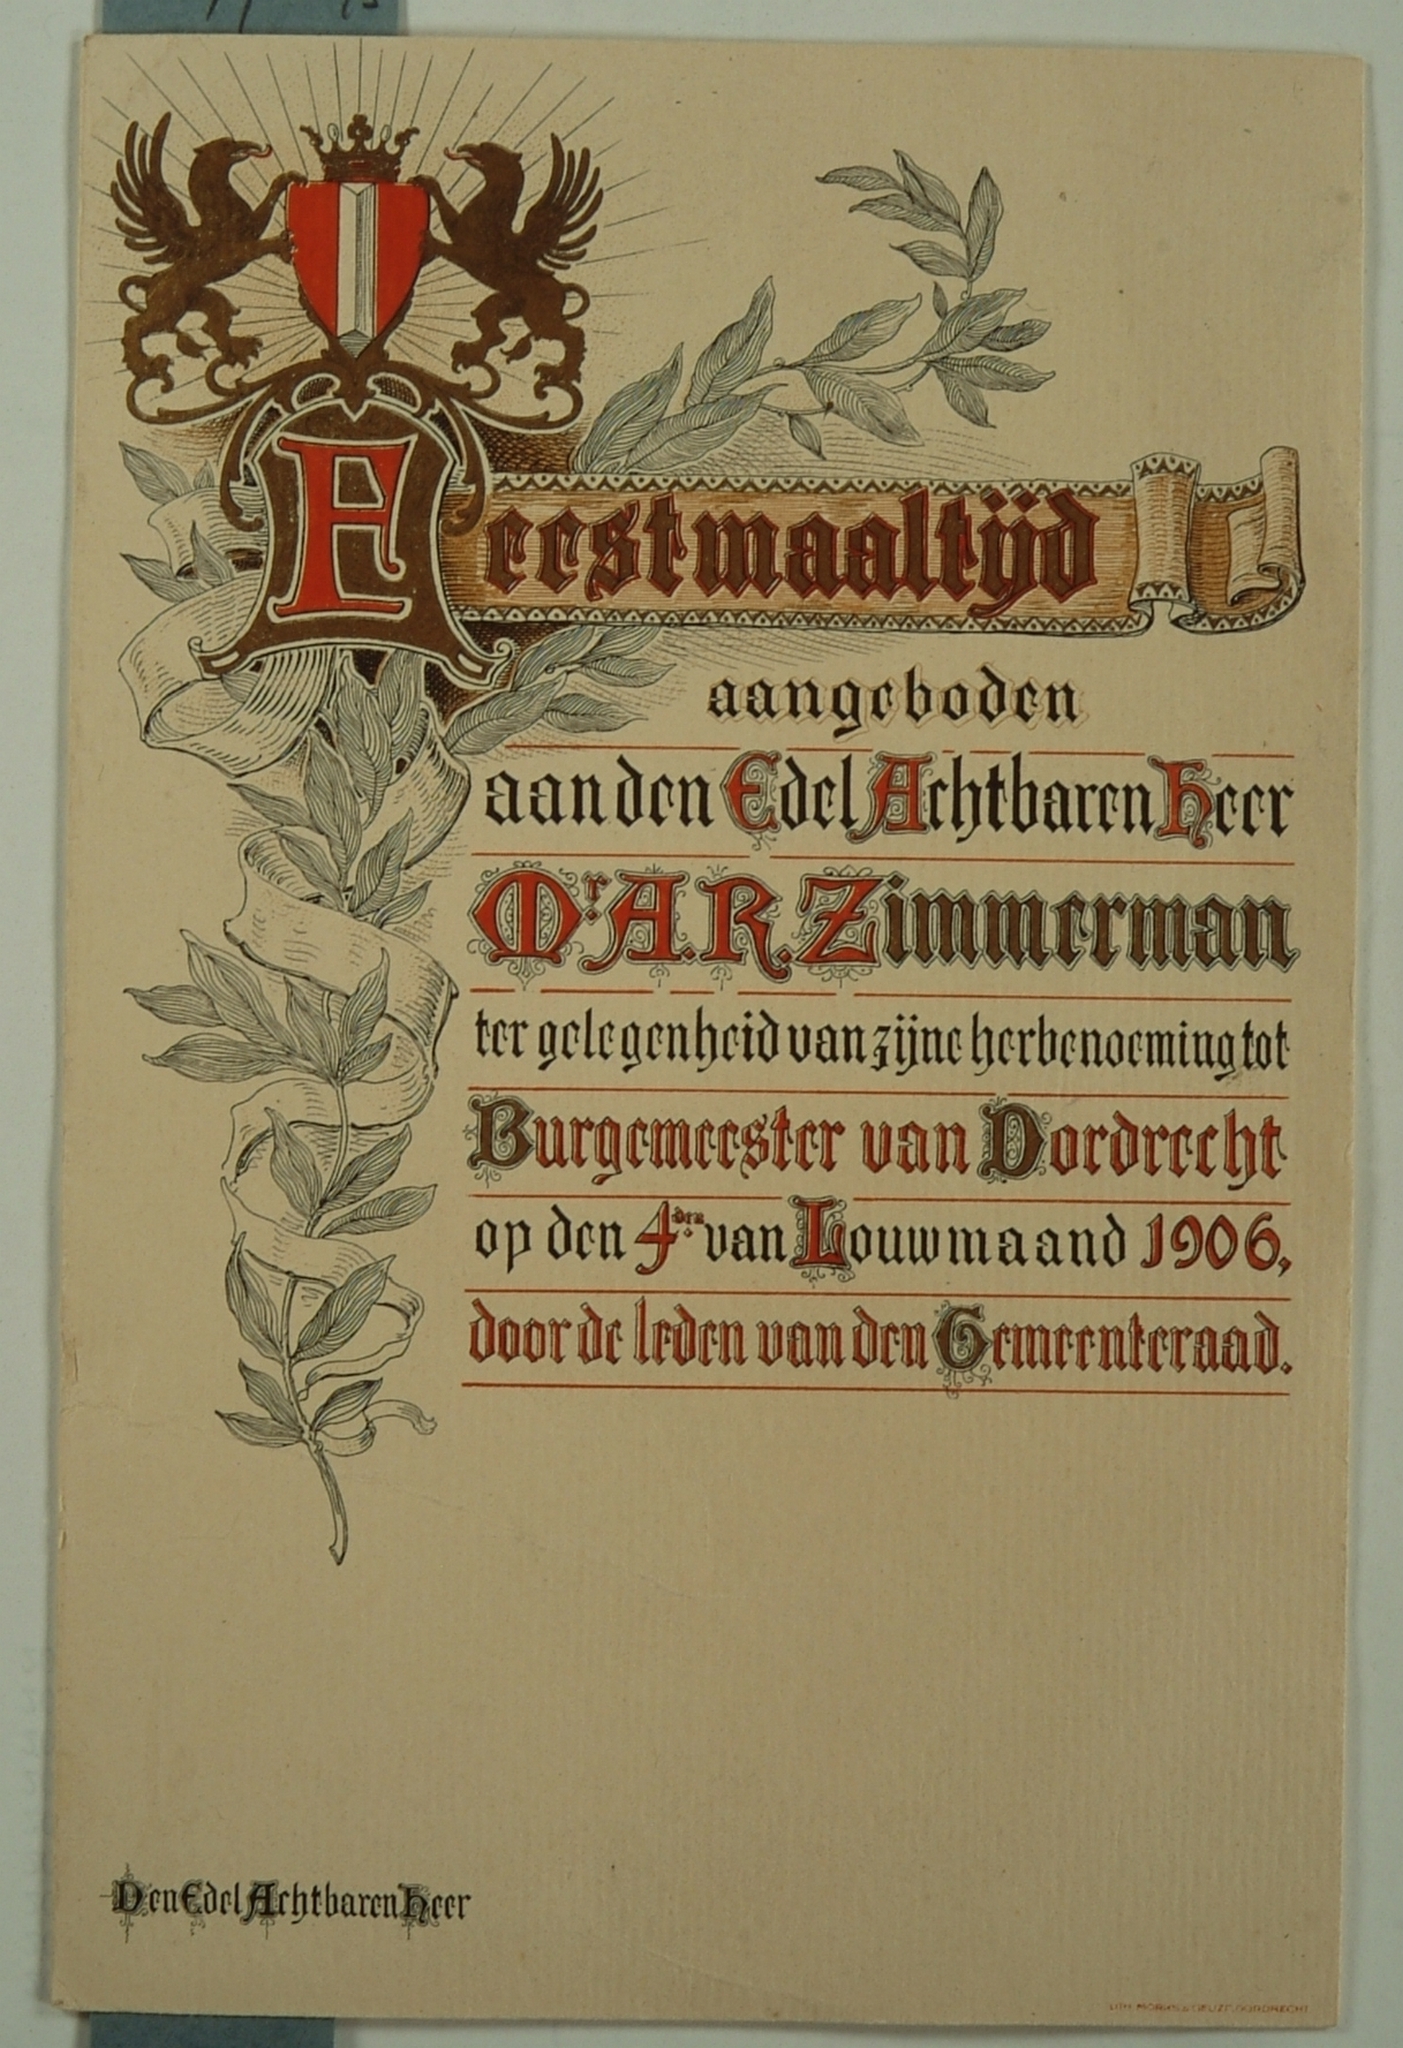 Feestmaaltijd
aangeboden
aan den Edel Achtbaren Heer
Mr. A. R. Zimmerman
ter gelegenheid van zijne herbenoeming tot
Burgemeester van Dordrecht
op den 4den van Louwmaand 1906,
door de leden van den Gemeenteraad.
Den Edel Achtbaren Heer
LITH. DORDRECHT